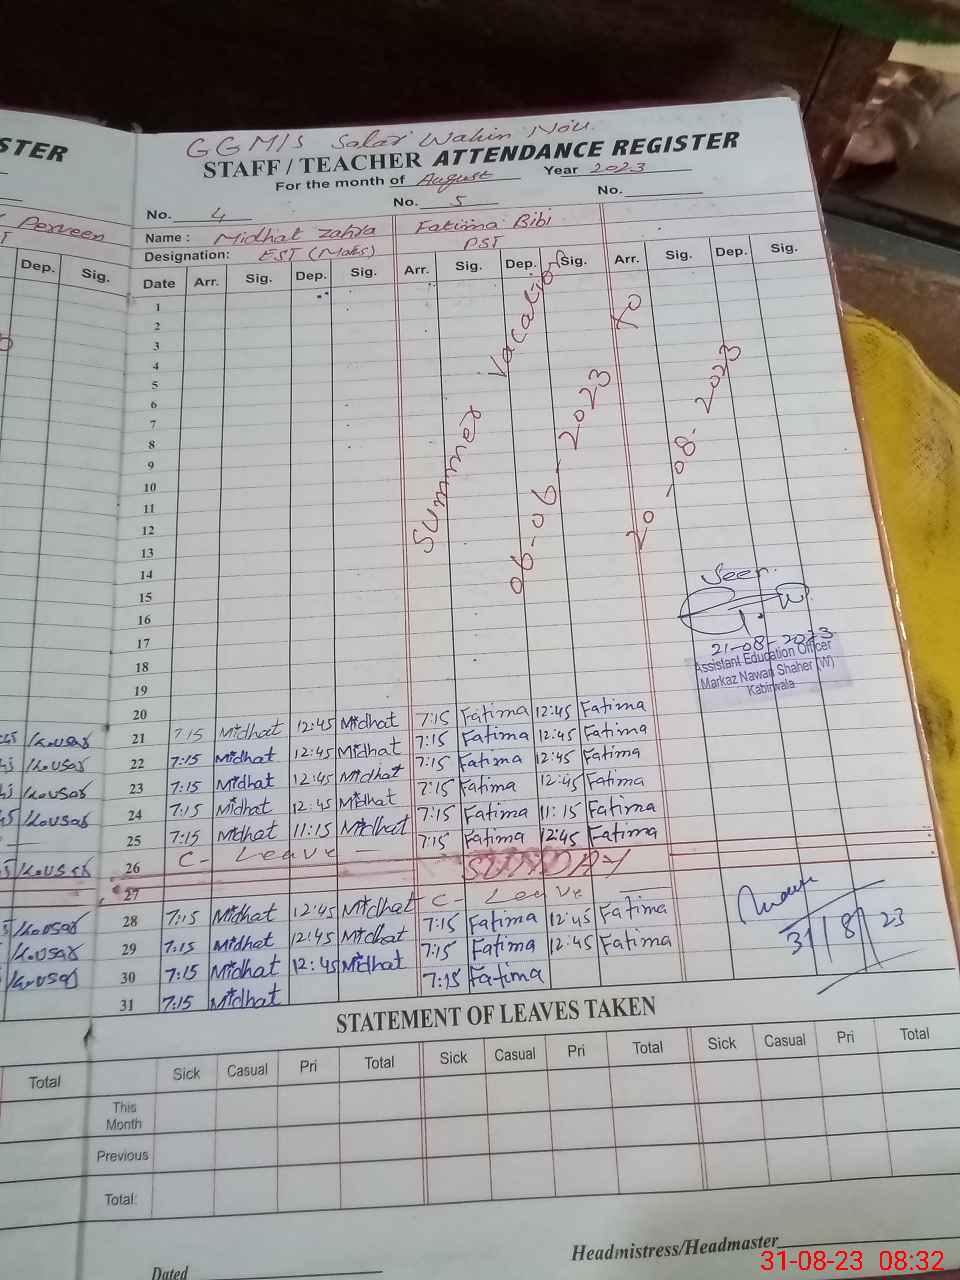 STER
GGM/S Salar Wahin Nou.
STAFF / TEACHER ATTENDANCE REGISTER
For the month of August Year 2023
No. 4 No. 5 No.
Perveen
Name : Midhat Zahra Fatima Bibi
Designation: EST (Maths) PST
Dep. Sig. Date Arr. Sig. Dep. Sig. Arr. Sig. Dep. Sig. Arr. Sig. Dep. Sig.
1
2
3
4
5
6
7
8
9
10
11
12
13
14
15
16
17
18
19
Summer Vacation
06-06-2023 To
20-08-2023
Seen
21-08-2023
Assistant Education Officer
Markaz Nawan Shaher (W)
Kabirwala
20
Kousar 21 7:15 Midhat 12:45 Midhat 7:15 Fatima 12:45 Fatima
Kousar 22 7:15 Midhat 12:45 Midhat 7:15 Fatima 12:45 Fatima
Kousar 23 7:15 Midhat 12:45 Midhat 7:15 Fatima 12:45 Fatima
Kousar 24 7:15 Midhat 12:45 Midhat 7:15 Fatima 12:45 Fatima
25 7:15 Midhat 11:15 Midhat 7:15 Fatima 11:15 Fatima
Kousar 26 C- Leave - 7:15 Fatima 12:45 Fatima
27 SUNDAY
Kousar 28 7:15 Midhat 12:45 Midhat C- Leave
Kousar 29 7:15 Midhat 12:45 Midhat 7:15 Fatima 12:45 Fatima
Kousar 30 7:15 Midhat 12:45 Midhat 7:15 Fatima 12:45 Fatima
31 7:15 Midhat 7:15 Fatima
31/8/23
STATEMENT OF LEAVES TAKEN
Total Sick Casual Pri Total Sick Casual Pri Total Sick Casual Pri Total
This Month
Previous
Total:
Headmistress/Headmaster
Dated
31-08-23 08:32